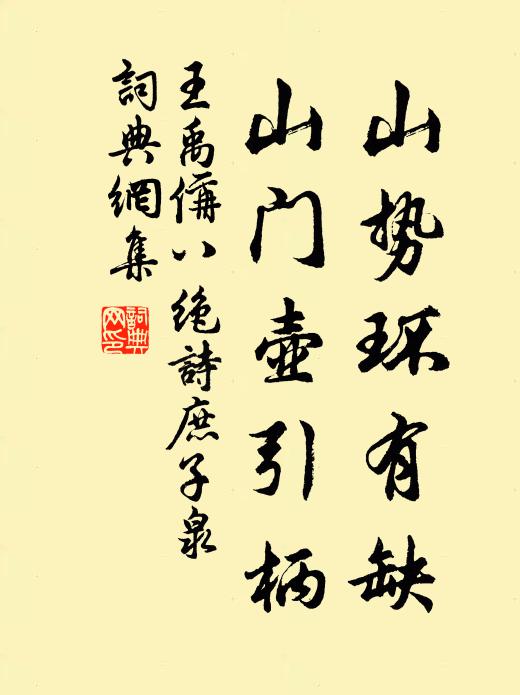 山势环有缺
山门壶引柄
王禹偁八绝詩庶子泉
詞典網集
詞典网印